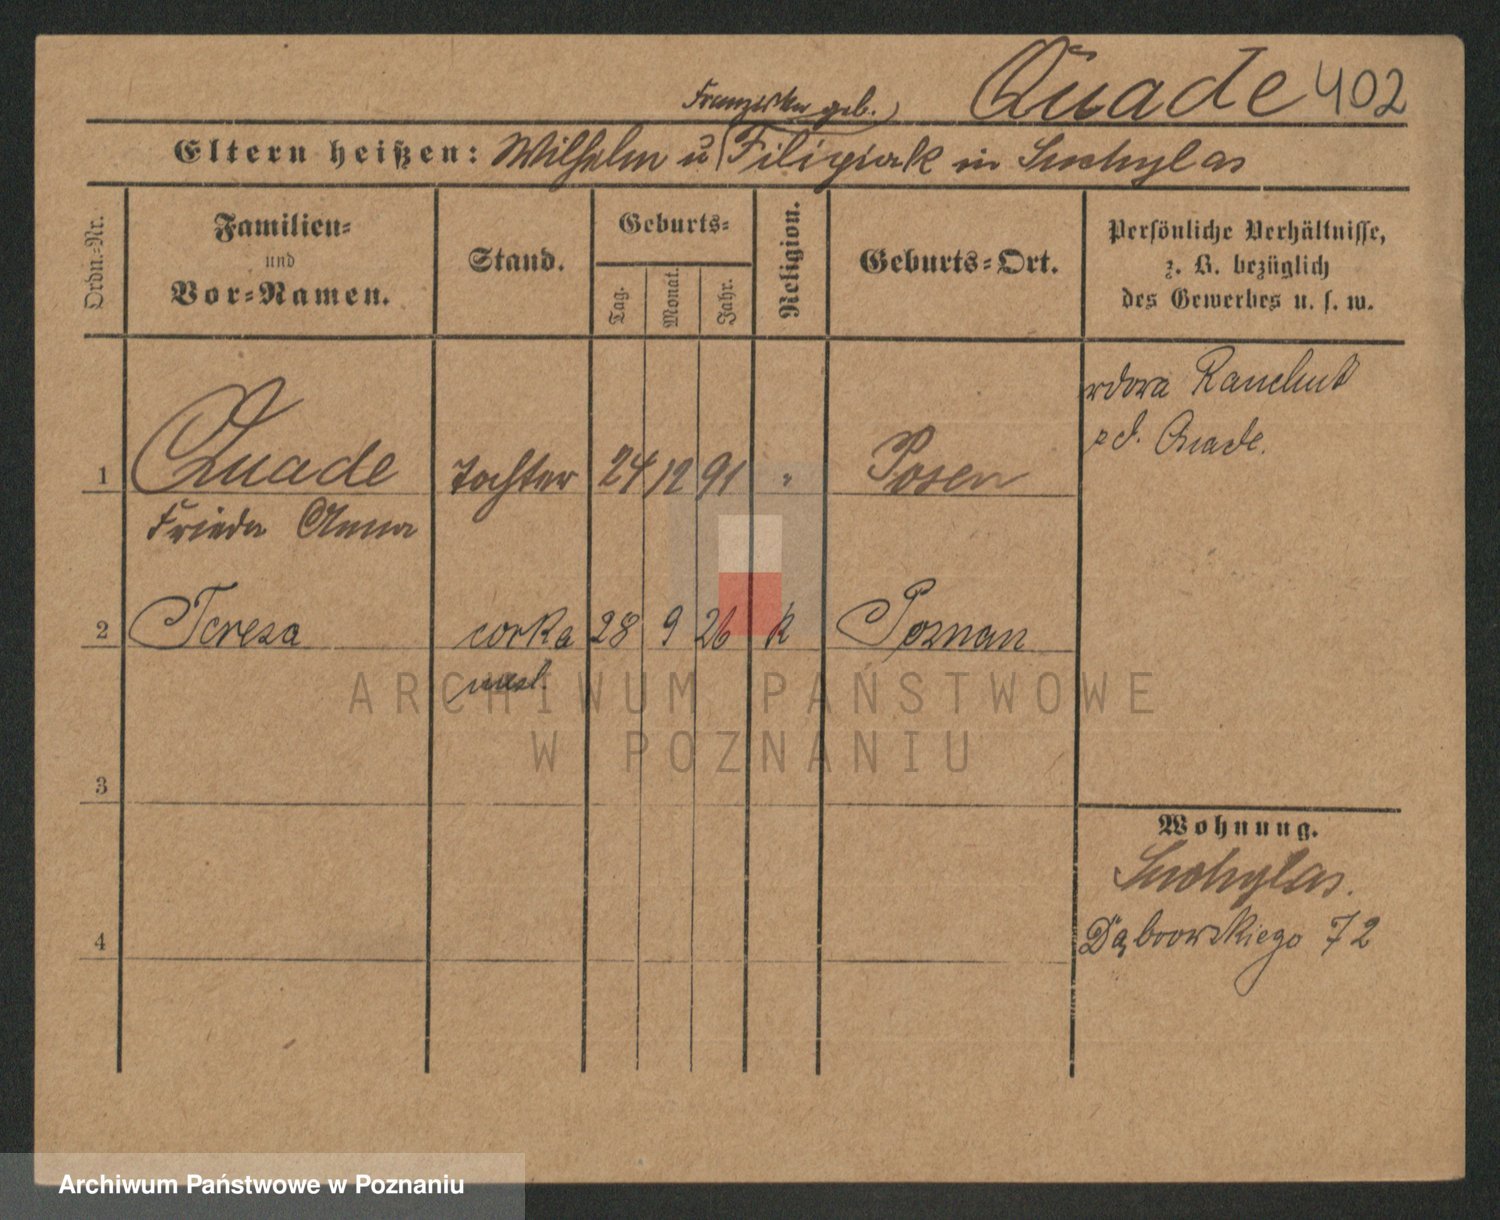 Quade 402
Franziska geb.
Eltern heißen: Wilhelm u Filipiak in Suchylas
Ordn.-Nr.
Familien-
und
Vor-Namen.
Stand.
Geburts-
Tag.
Monat.
Jahr.
Religion.
Geburts-Ort.
Persönliche Verhältnisse,
z. B. bezüglich
des Gewerbes u. s. w.
wdowa Ranchut
Quade.
1 Quade Tochter 24 12 91 " Posen
Frieda Anna
2 Teresa corka 28 9 26 k Poznan
3
4
Wohnung.
Suchylas.
Dąbrowskiego 72
ARCHIWUM PAŃSTWOWE
W POZNANIU
Archiwum Państwowe w Poznaniu